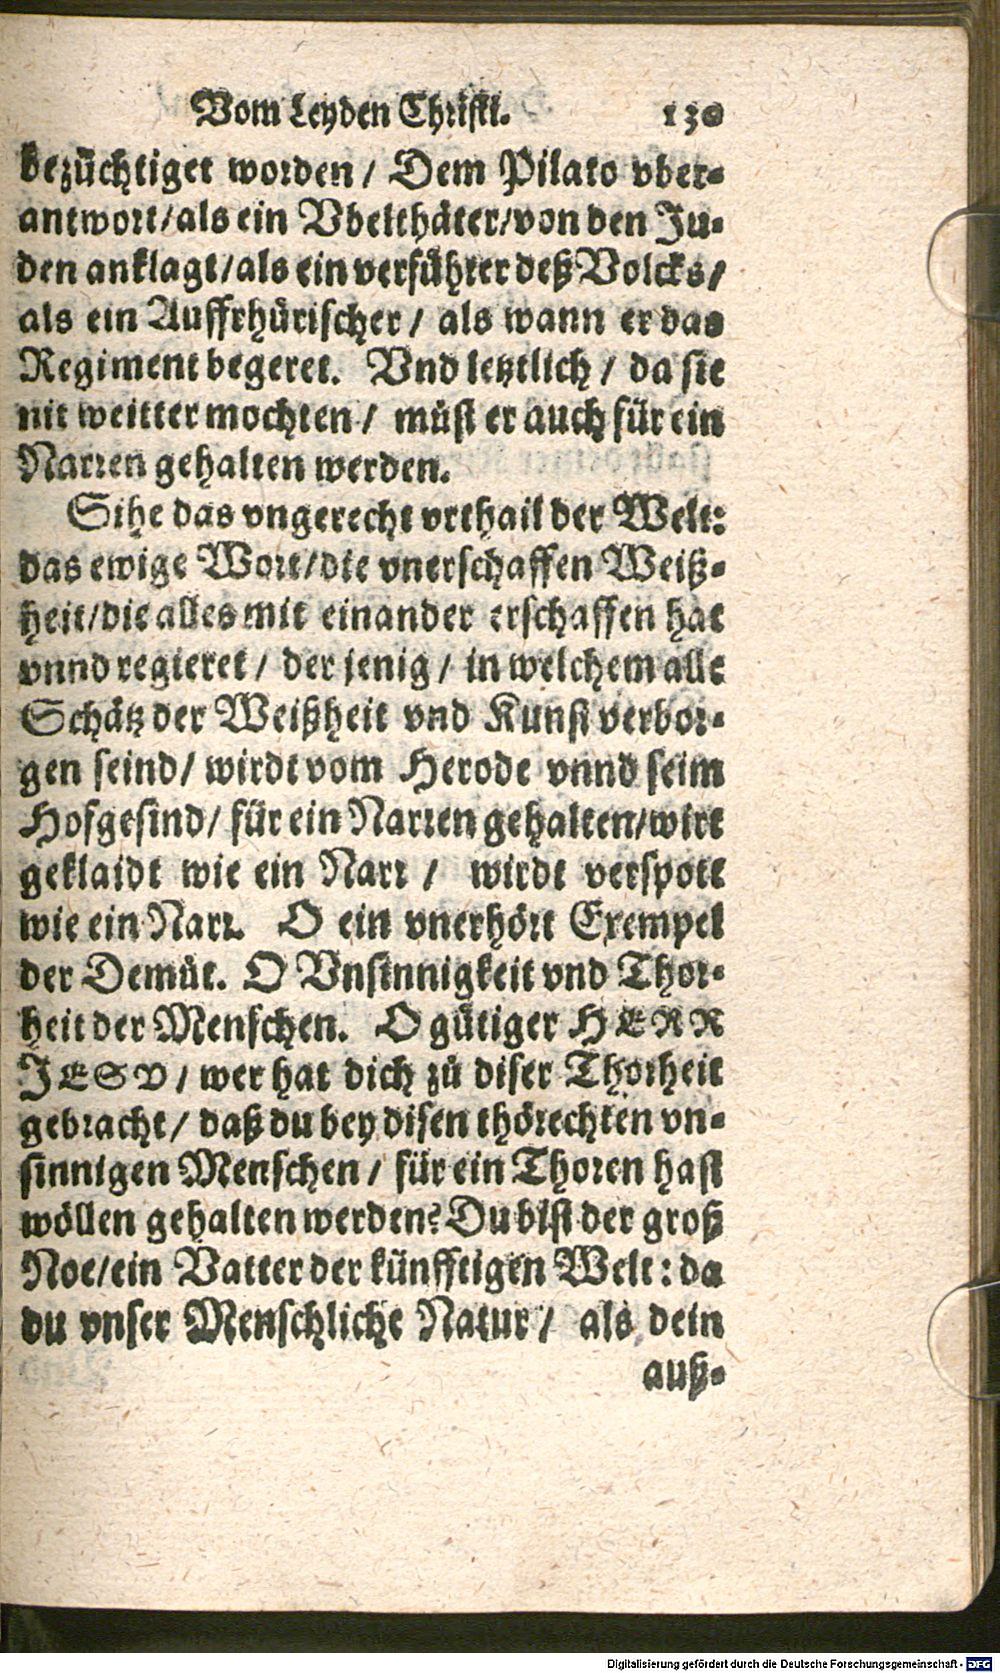 Vom Leyden Christi. 130
bezüchtiget worden / Dem Pilato vber-
antwort/als ein Vbelthäter/von den Ju-
den anklagt/als ein verführer deß Volcks/
als ein Auffrhürischer / als wann er das
Regiment begeret. Vnd letztlich / da sie
nit weitter mochten / můst er auch für ein
Narren gehalten werden.
Sihe das vngerecht vrthail der Welt:
das ewige Wort/die vnerschaffen Weiß-
heit/die alles mit einander erschaffen hat
vnnd regieret / der jenig / in welchem alle
Schätz der Weißheit vnd Kunst verbor-
gen seind/ wirdt vom Herode vnnd seim
Hofgesind/ für ein Narren gehalten/wirt
geklaidt wie ein Narr / wirdt verspott
wie ein Narr. O ein vnerhört Exempel
der Demůt. O Vnsinnigkeit vnd Thor-
heit der Menschen. O gütiger HERR
JESV / wer hat dich zů diser Thorheit
gebracht / daß du bey disen thörechten vn-
sinnigen Menschen / für ein Thoren hast
wöllen gehalten werden? Du bist der groß
Noe/ein Vatter der künfftigen Welt : da
du vnser Menschliche Natur / als dein
auß-
Digitalisierung gefördert durch die Deutsche Forschungsgemeinschaft - DFG